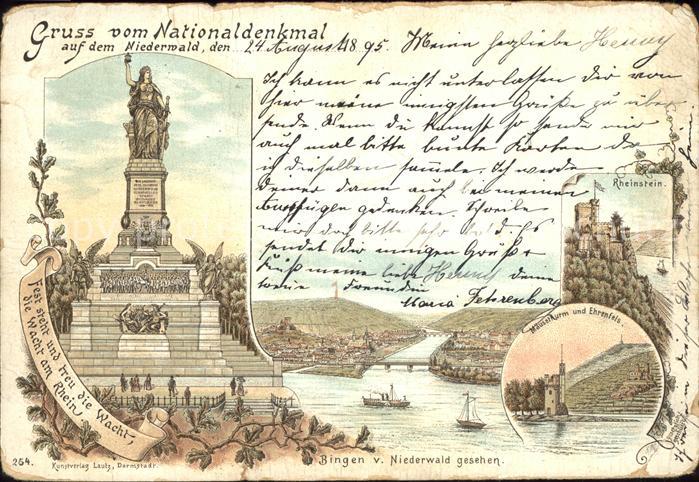 Gruss vom Nationaldenkmal
auf dem Niederwald, den 24 August 18 95.
Meine herzliebe Henny
Ich kann es nicht unterlassen dir von
hier meine innigsten Grüße zu über
sende. Wenn du kannst so sende mir
auch mal bitte bunte Karten da
ich dieselben sammle. Ich werde
deiner dann auch bei meinen
Ausflügen gedenken. Schreibe
mir doch bitte sehr bald. Es
sendet dir innigen Gruß &
Kuß meine liebe Henny deine
treue Freundin
Maria Fehrenberg
Rheinstein.
Mäusethurm und Ehrenfels.
Fest steht und treu die Wacht,
die Wacht am Rhein.
Bingen v. Niederwald gesehen.
264.
Kunstverlag Lautz, Darmstadt.